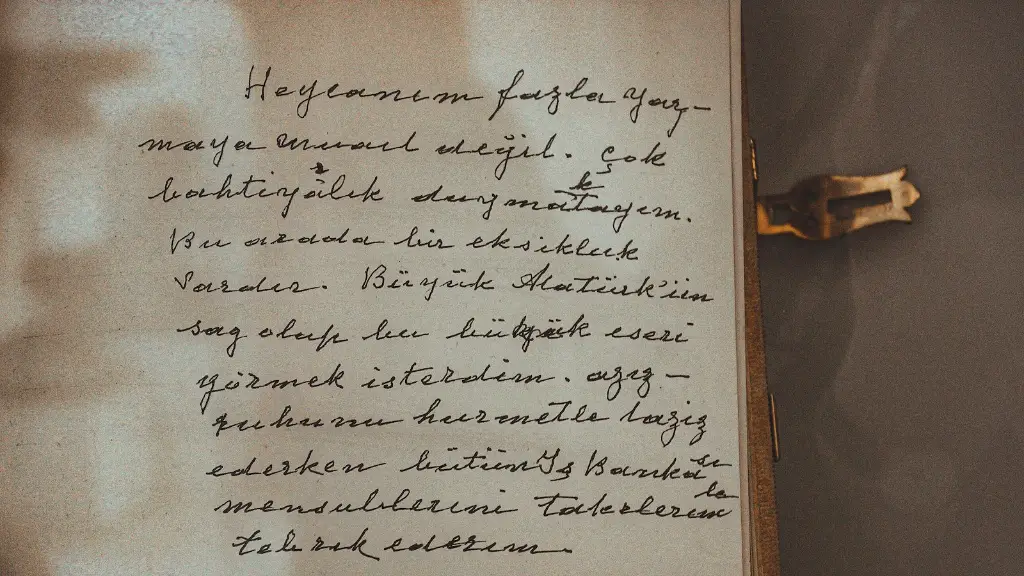 Heycanım fazla yaz-
maya muail değil. Çok
bahtiyârlık duymaktayım.
Bu arada bir eksikluk
vardır. Büyük Atatürk'ün
sag olup bu büyük eseri
görmek isterdim. aziz
ruhunu hurmetle taziz
ederken bütün İş Bankası
mensublerini takrlerimle
tebrik ederim.